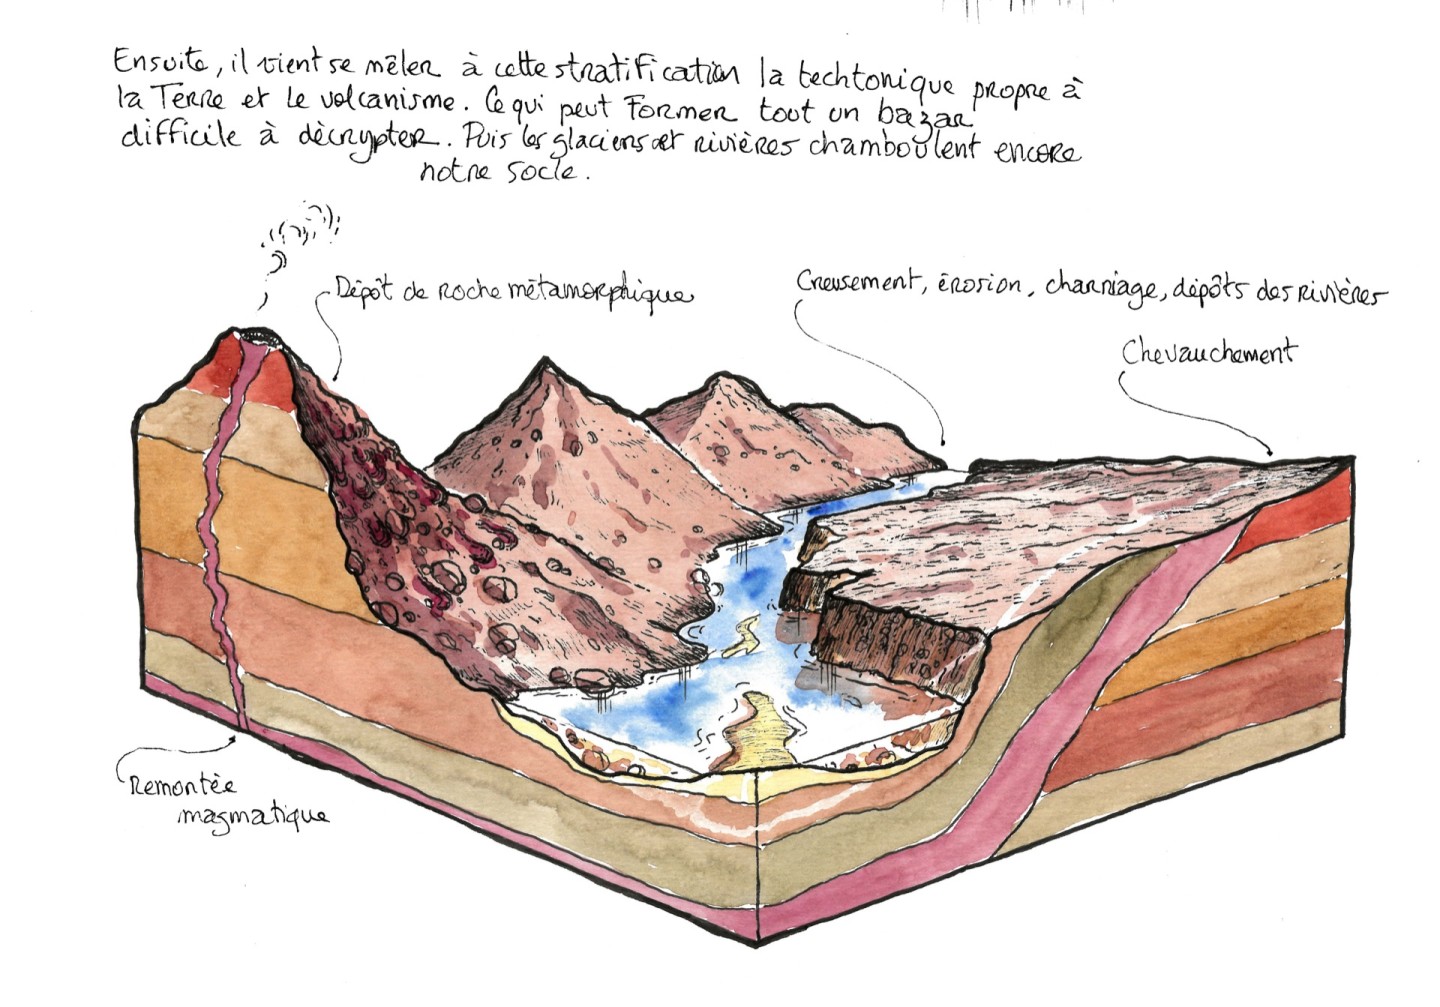 Ensuite, il vient se mêler à cette stratification la techtonique propre à
la Terre et le volcanisme. Ce qui peut former tout un bazar
difficile à dècrypter. Puis les glaciers et rivières chamboulent encore
notre socle.
Dépôt de roche métamorphique
Creusement, érosion, charriage, dépôts des rivières
Chevauchement
Remontée
magmatique